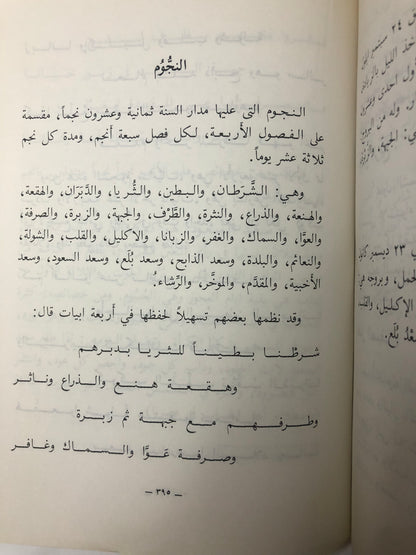 النجُّوم
النجـوم التي عليها مدار السنة ثمانية وعشرون نجماً، مقسمة
على الفصول الأربعة، لكل فصل سبعة أنجم، ومدة كل نجم
ثلاثة عشر يوماً.
وهي: الشَّرَطان، والبطين، والثُّريا، والدَّبَران، والهقعة،
والهنعة، والذراع، والنثرة، والطَّرْف، والجبهة، والزبرة، والصرفة،
والعوَّا، والسماك، والغفر، والزبانا، والإكليل، والقلب، والشولة،
والنعائم، والبلدة، وسعد الذابح، وسعد بُلَع، وسعد السعود، وسعد
الأخبية، والمقدَّم، والموخَّر، والرِّشاء.
وقد نظمها بعضهم تسهيلاً لحفظها في أربعة ابيات قال:
شرطْنـا بطينـاً للثريـا بدبرهم
وهقعـة هنـع والذراع ونـاثر
وطرفهـم مع جبهـة ثم زبـرة
وصرفـة عَوّا والسماك وغافر
ـ ٣٩٥ ـ
٢٤ سبتمبر
الليل
الجبهة،
٢٣ ديسمبر
الحمل، وبروجه هي
الإكليل، والقلب
سَعْدُ بُلَع.